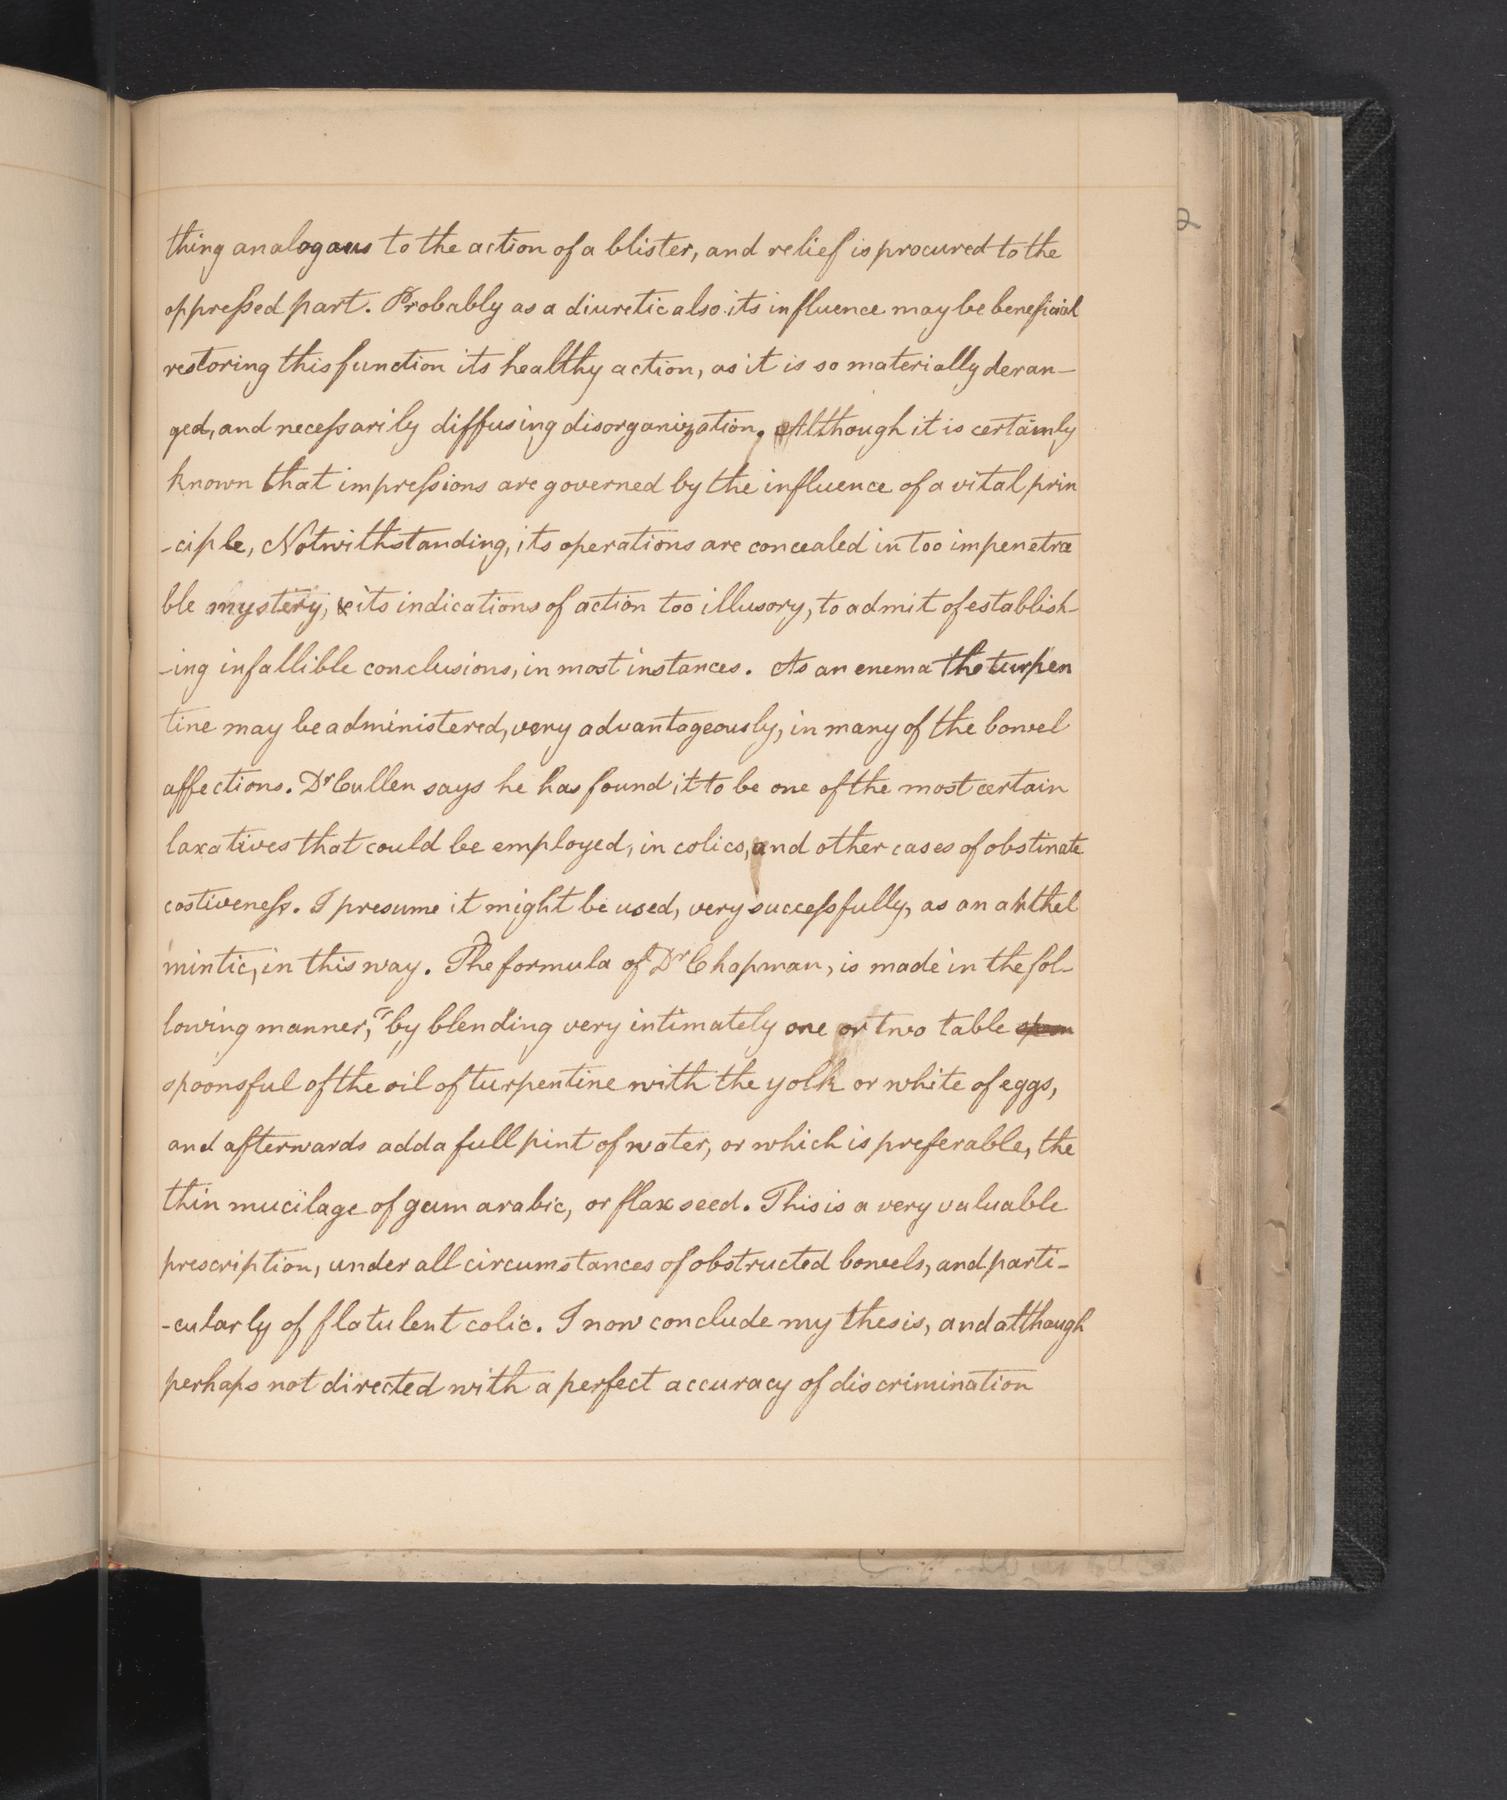 2
thing analogous to the action of a blister, and relief is procured to the
oppreſsed part. Probably as a diuretic also its influence may be beneficial
restoring this function its healthy action, as it is so materially deran-
ged, and neceſsarily diffusing disorganization. Although it is certainly
known that impreſsions are governed by the influence of a vital prin
-ciple, Notwithstanding, its operations are concealed in too impenetra
ble mystery, & its indications of action too illusory, to admit of establish-
-ing infallible conclusions, in most instances. As an enema the turpen
tine may be administered, very advantageously, in many of the bowel
affections. Dr Cullen says he has found it to be one of the most certain
laxatives that could be employed, in colics, and other cases of obstinate
costiveneſs. I presume it might be used, very succeſsfully, as an anthel
mintic, in this way. The formula of Dr Chapman, is made in the fol-
lowing manner, "by blending very intimately one or two table spoon
spoonsful of the oil of turpentine with the yolk or white of eggs,
and afterwards add a full pint of water, or which is preferable, the
thin mucilage of gum arabic, or flax seed. This is a very valuable
prescription, under all circumstances of obstructed bowels, and parti-
-cularly of flatulent colic. I now conclude my thesis, and although
perhaps not directed with a perfect accuracy of discrimination